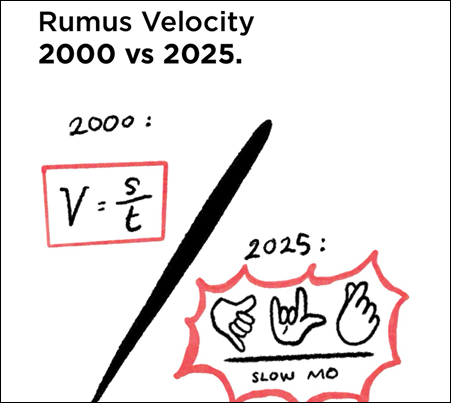 Rumus Velocity
2000 vs 2025.
2000 :
V = s/t
2025 :
SLOW MO